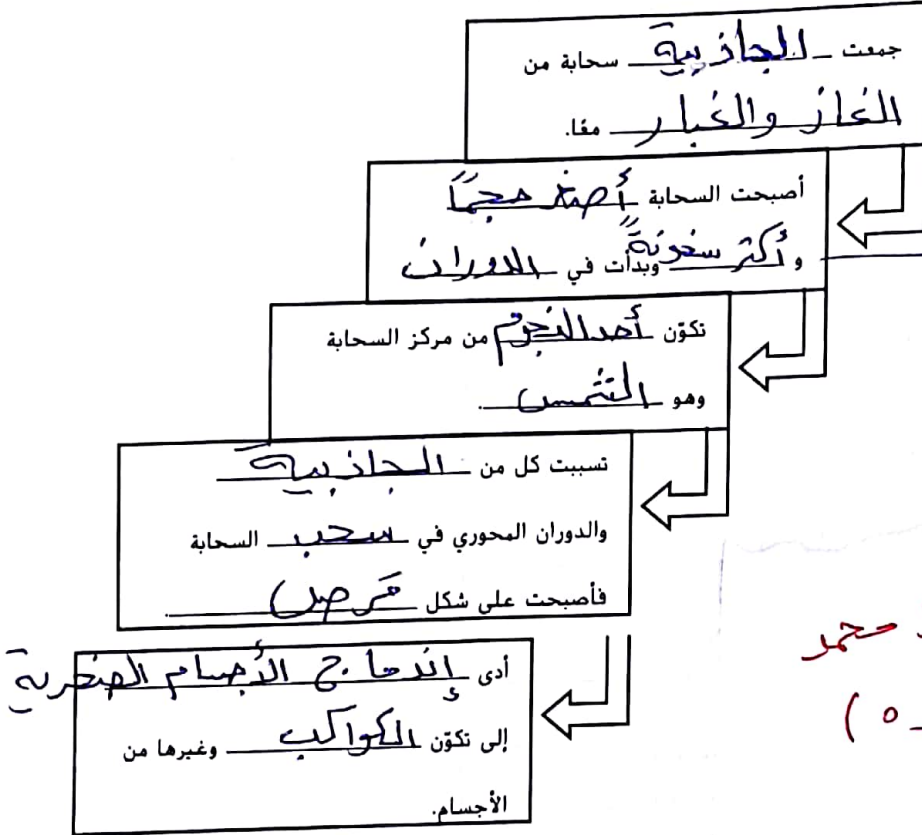 جمعت الجاذبية سحابة من
الغاز والغبار معًا.
أصبحت السحابة أصغر حجمًا
و أكثر سخونةً وبدأت في الدوران
تكوّن أحد النجوم من مركز السحابة
وهو الشمس.
تسببت كل من الجاذبية
والدوران المحوري في سحب السحابة
فأصبحت على شكل قرص.
أدى إندماج الأجسام الصخرية
إلى تكوّن الكواكب وغيرها من
الأجسام.
محمد
٥ )